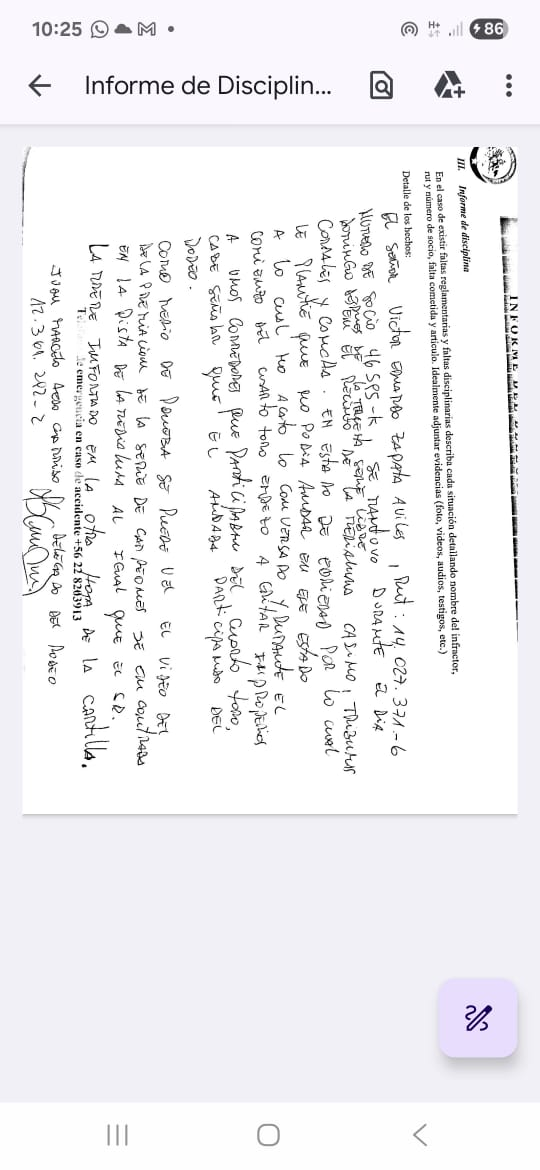 10:25
H+
86
Informe de Disciplin...
III. Informe de disciplina
En el caso de existir faltas reglamentarias y faltas disciplinarias describa cada situación detallando nombre del infractor,
rut y número de socio, falta cometida y artículo. Idealmente adjuntar evidencias (foto, videos, audios, testigos, etc.)
Detalle de los hechos:
EL SEÑOR VICTOR EDUARDO ZAPATA AVILES, RUT: 14.027.371-6
NUMERO DE SOCIO SE MANTUVO DURANTE EL DIA
DOMINGO DESPUES DE LA TERCERA SERIE LIBRE
EN EL RECINTO DE LA MEDIALUNA CASINO, TRIBUNAS
CORRALES Y COMETA. EN ESTADO DE EBRIEDAD POR LO CUAL
LE PLANTIE QUE NO PODIA ANDAR EN ESE ESTADO
A LO CUAL NO ACATO LO CONVERSADO Y DURANTE EL
COMIENZO DEL CUARTO TORO EMPEZO A GRITAR IMPROPERIOS
A UNOS CORREDORES QUE PARTICIPABAN DEL CUARTO TORO,
CABE SEÑALAR QUE EL ANDABA PARTICIPANDO DEL
RODEO.
COMO MEDIO DE PRUEBA SE PUEDE VER EL VIDEO DEL
DE LA PREMIACION DE LA SERIE DE CAMPEONES SE ENCONTRABA
EN LA PISTA DE LA MEDIALUNA AL IGUAL QUE EL SR.
LA TORRE INFORTADO EN LA OTRA HOJA DE LA CARTILLA.
de emergencia en caso de accidente +56 22 8203913
JUAN MARCELO DELEGADO DEL RODEO
12.301.242-2